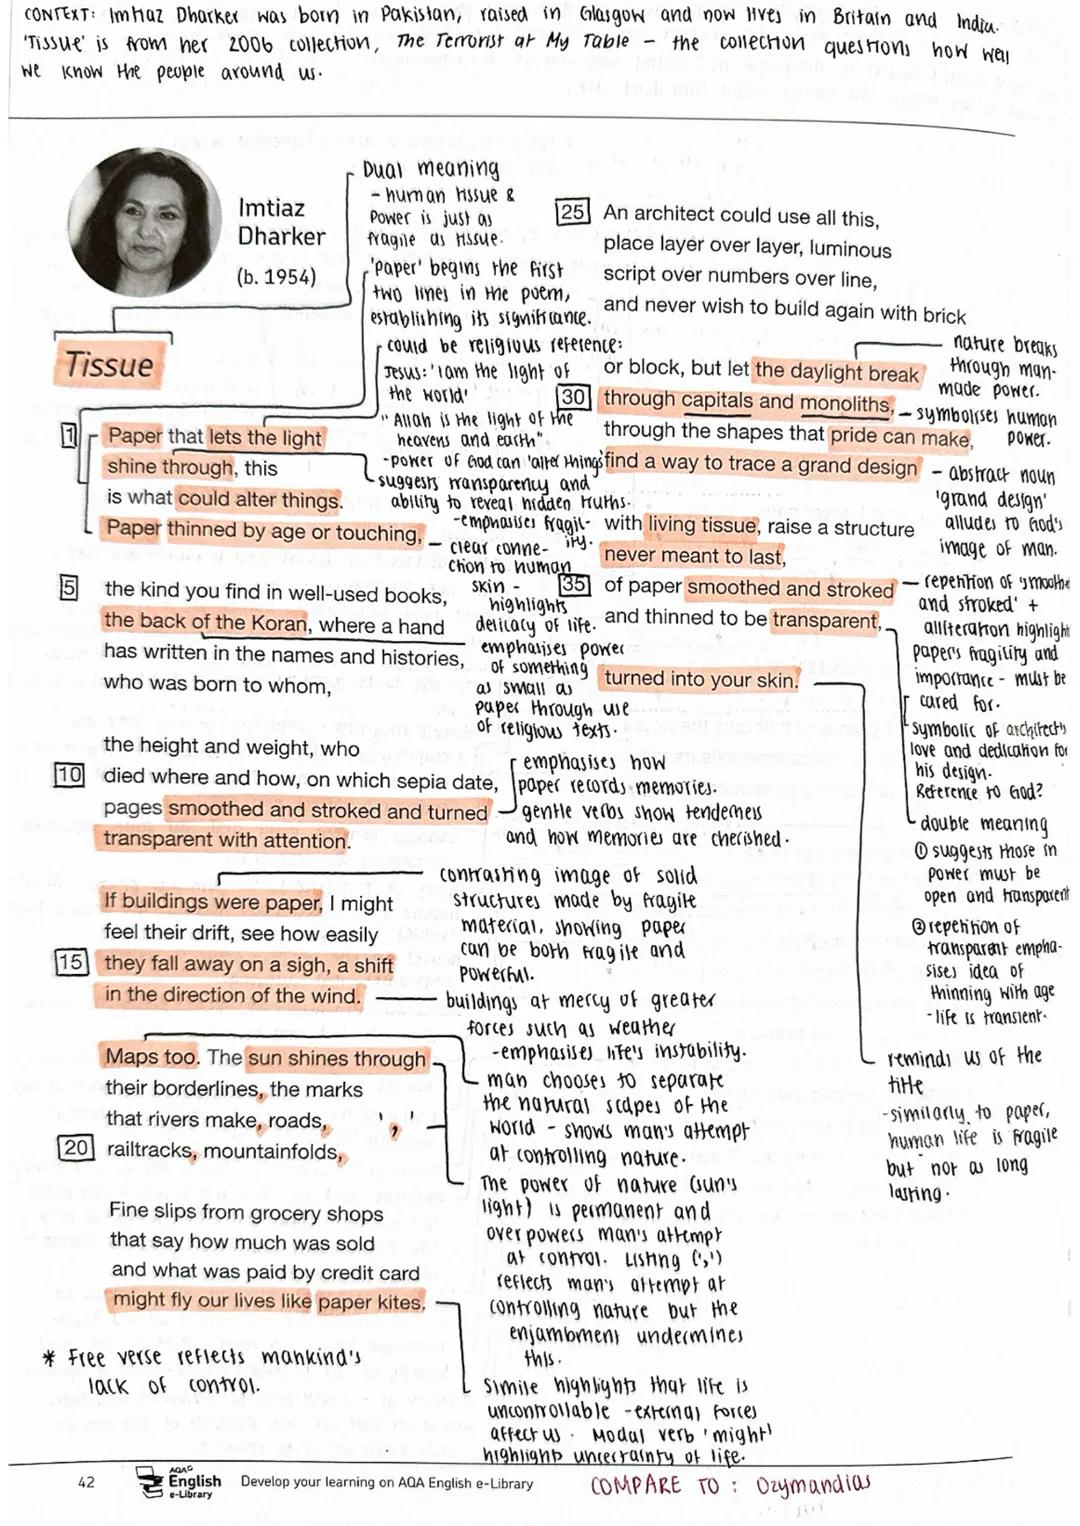 CONTEXT: Imtiaz Dharker was born in Pakistan, raised in Glasgow and now lives in Britain and India.
'Tissue' is from her 2006 collection, The Terrorist at My Table – the collection questions how well
we know the people around us.
Imtiaz
Dharker
(b. 1954)
Tissue
Dual meaning
- human tissue &
Power is just as
fragile as tissue.
'paper' begins the first
two lines in the poem,
establishing its significance.
could be religious reference:
Jesus: 'I am the light of
the world'
" Allah is the light of the
heavens and earth"
-power of God can 'alter things'
suggests transparency and
ability to reveal hidden truths.
1 Paper that lets the light
shine through, this
is what could alter things.
Paper thinned by age or touching,
-emphasises fragil-
ity.
clear conne-
ction to human
skin -
highlights
delicacy of life.
5 the kind you find in well-used books,
the back of the Koran, where a hand
has written in the names and histories,
who was born to whom,
emphasises power
of something
as small as
paper through use
of religious texts.
the height and weight, who
10 died where and how, on which sepia date,
pages smoothed and stroked and turned
transparent with attention.
emphasises how
paper records memories.
gentle verbs show tenderness
and how memories are cherished.
If buildings were paper, I might
feel their drift, see how easily
15 they fall away on a sigh, a shift
in the direction of the wind.
contrasting image of solid
structures made by fragile
material, showing paper
can be both fragile and
powerful.
buildings at mercy of greater
forces such as weather
-emphasises life's instability.
Maps too. The sun shines through
their borderlines, the marks
that rivers make, roads,
20 railtracks, mountainfolds,
' , '
man chooses to separate
the natural scapes of the
world - shows man's attempt
at controlling nature.
The power of nature (sun's
light) is permanent and
overpowers man's attempt
at control. Listing (',')
reflects man's attempt at
controlling nature but the
enjambment undermines
this.
Fine slips from grocery shops
that say how much was sold
and what was paid by credit card
might fly our lives like paper kites.
simile highlights that life is
uncontrollable - external forces
affect us. Modal verb 'might'
highlights uncertainty of life.
* Free verse reflects mankind's
lack of control.
25 An architect could use all this,
place layer over layer, luminous
script over numbers over line,
and never wish to build again with brick
or block, but let the daylight break
30 through capitals and monoliths,
through the shapes that pride can make,
find a way to trace a grand design
nature breaks
through man-
made power.
symbolises human
power.
- abstract noun
'grand design'
alludes to God's
image of man.
with living tissue, raise a structure
never meant to last,
35 of paper smoothed and stroked
and thinned to be transparent,
turned into your skin.
repetition of 'smoothe
and stroked' +
alliteration highlight
paper's fragility and
importance - must be
cared for.
symbolic of architect's
love and dedication for
his design.
Reference to God?
double meaning
① suggests those in
power must be
open and transparent
② repetition of
transparent empha-
sises idea of
thinning with age
- life is transient.
reminds us of the
title
-similarly to paper,
human life is fragile
but not as long
lasting.
42
AQA
English
e-Library
Develop your learning on AQA English e-Library
COMPARE TO : Ozymandias